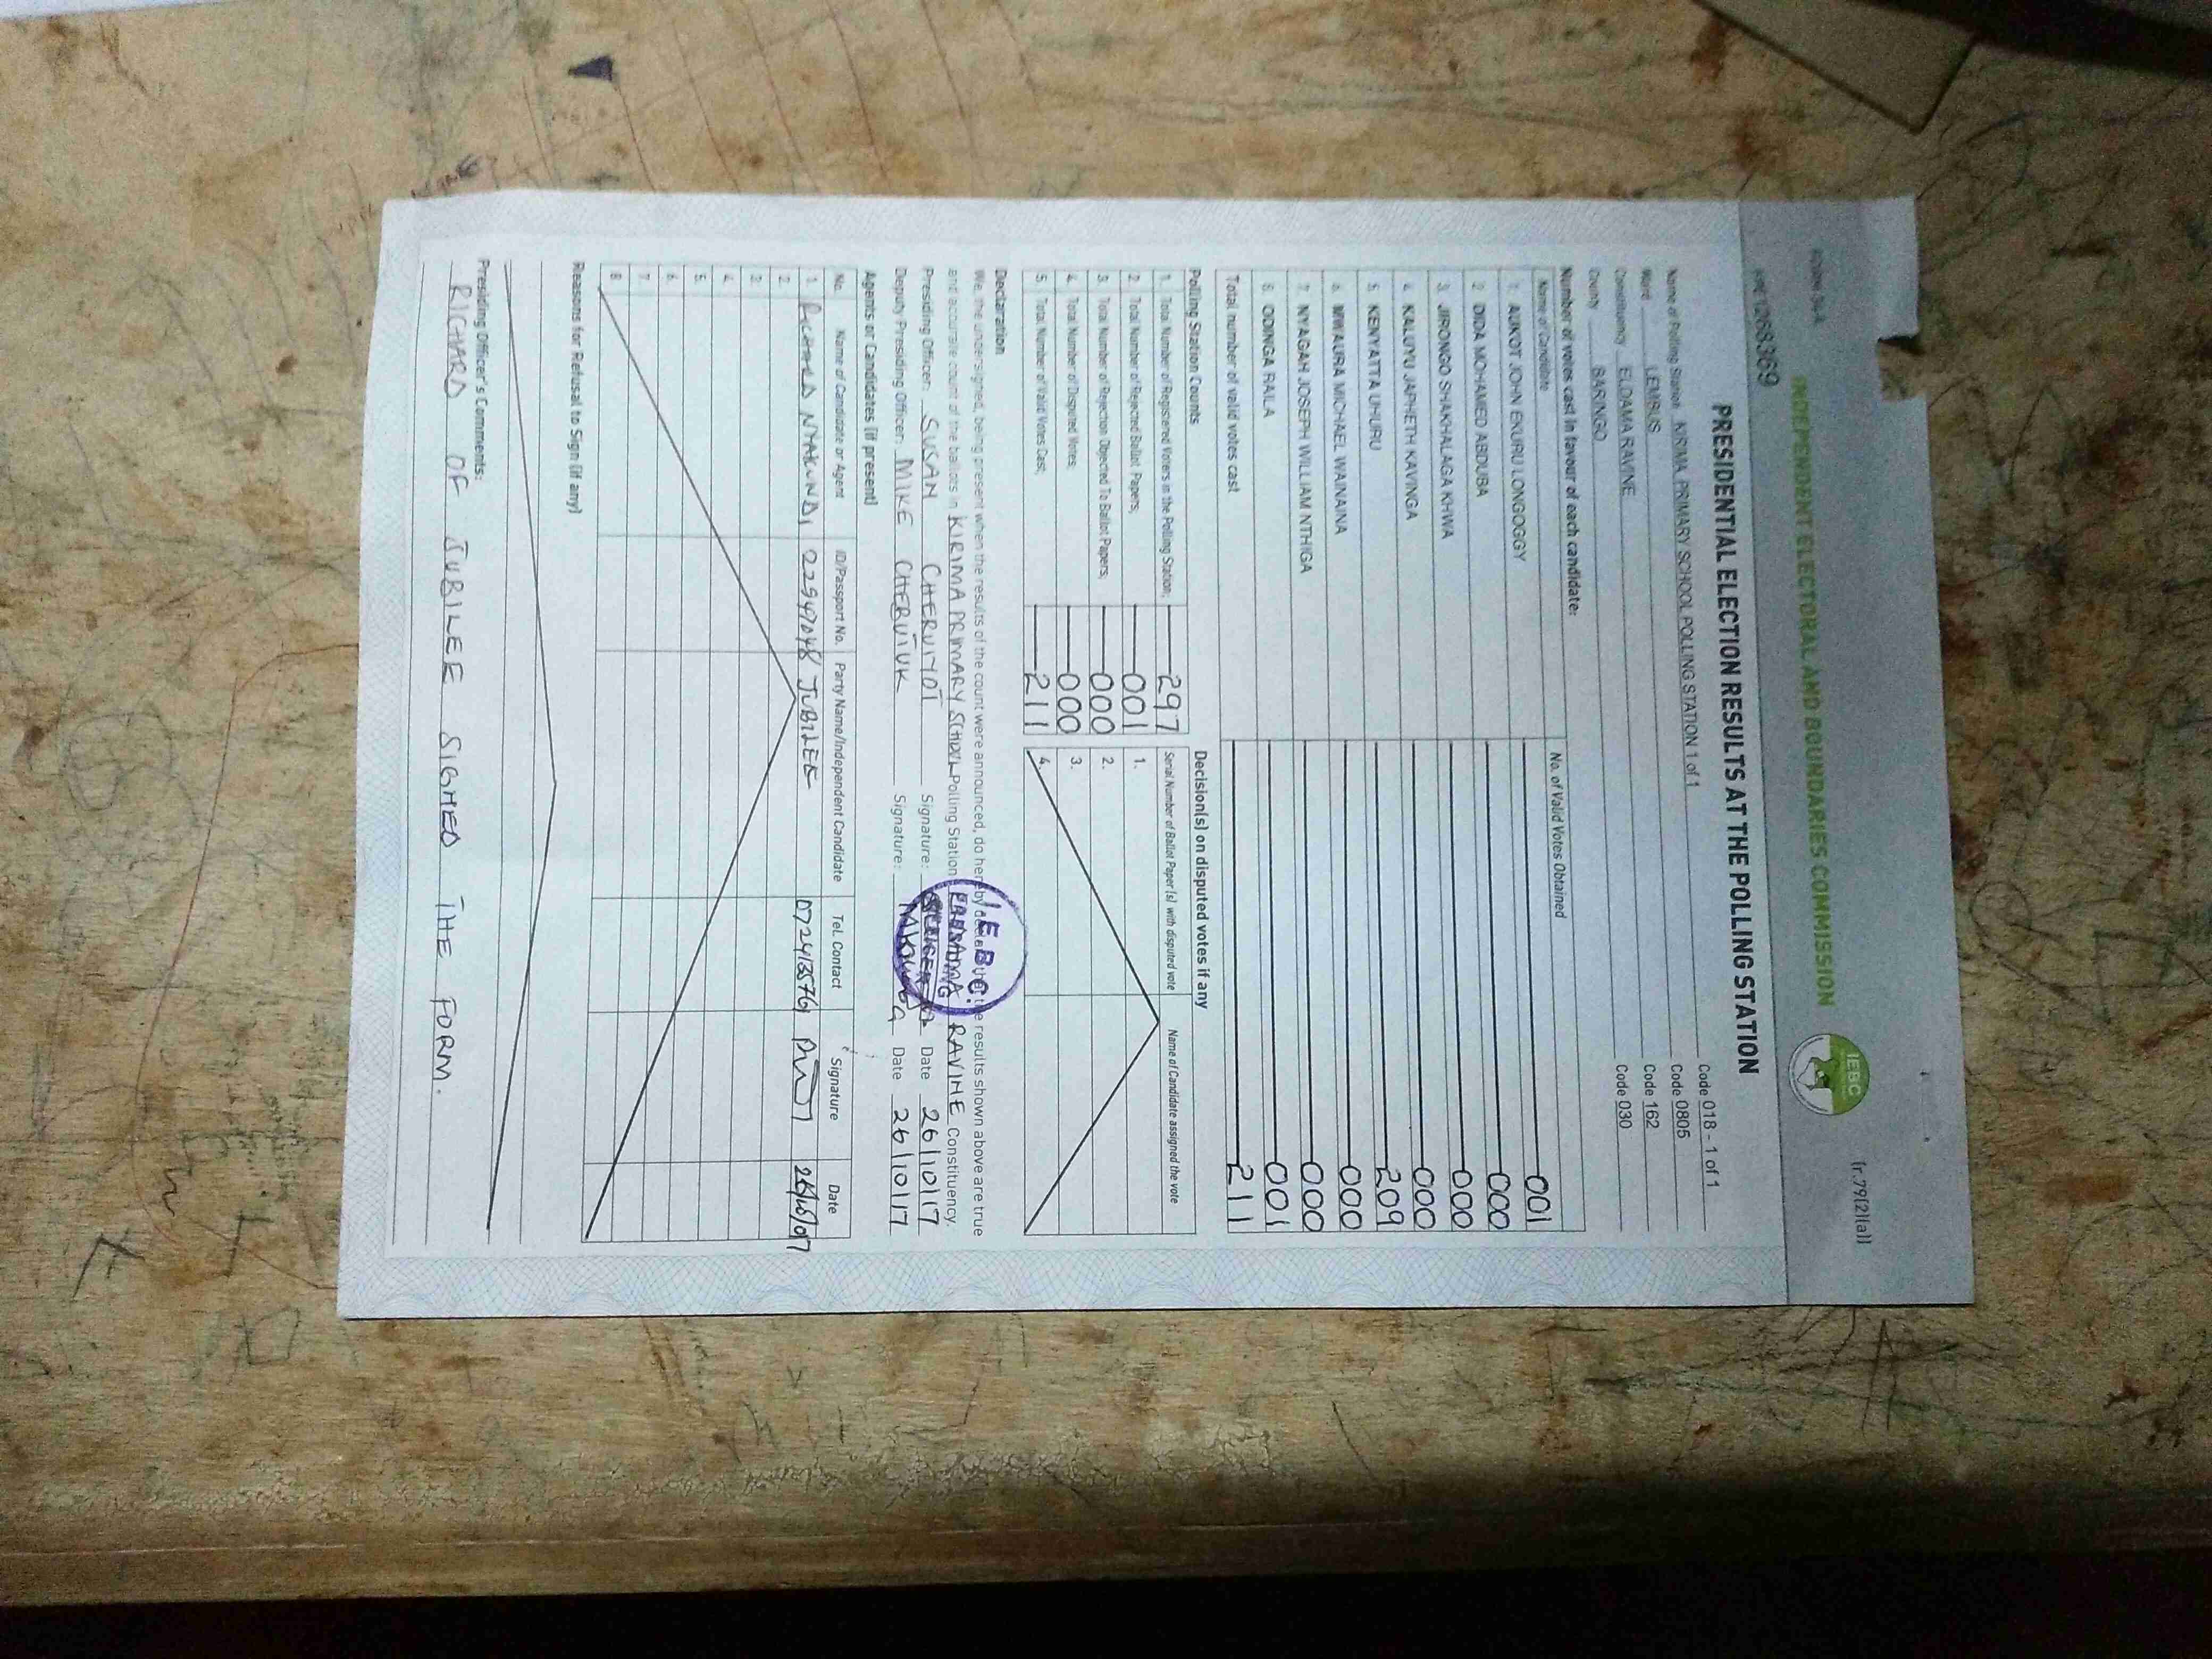 FORM 34A (r.79(2)(a))
INDEPENDENT ELECTORAL AND BOUNDARIES COMMISSION
IEBC
1268369
PRESIDENTIAL ELECTION RESULTS AT THE POLLING STATION
Name of Polling Station KIRIMA PRIMARY SCHOOL POLLING STATION 1 of 1 Code 018 - 1 of 1
Ward LEMBUS Code 0805
Constituency ELDAMA RAVINE Code 162
County BARINGO Code 030
Number of votes cast in favour of each candidate:
Name of Candidate No. of Valid Votes Obtained
1. AUKOT JOHN EKURU LONGOGGY 001
2. DIDA MOHAMED ABDUBA 000
3. JIRONGO SHAKHALAGA KHWA 000
4. KALUYU JAPHETH KAVINGA 000
5. KENYATTA UHURU 209
6. MWAURA MICHAEL WAINAINA 000
7. NYAGAH JOSEPH WILLIAM NTHIGA 000
8. ODINGA RAILA 001
Total number of valid votes cast 211
Polling Station Counts Decision(s) on disputed votes if any
1. Total Number of Registered Voters in the Polling Station; 297 Serial Number of Ballot Paper (s) with disputed vote Name of Candidate assigned the vote
2. Total Number of Rejected Ballot Papers; 001 1.
3. Total Number of Rejection Objected To Ballot Papers; 000 2.
4. Total Number of Disputed Votes; 000 3.
5. Total Number of Valid Votes Cast; 211 4.
Declaration
We, the undersigned, being present when the results of the count were announced, do hereby declare that the results shown above are true
and accurate count of the ballots in KIRIMA PRIMARY SCHOOL Polling Station ELDAMA RAVINE Constituency.
Presiding Officer: SUSAN CHERUIYOT Signature: Date 26/10/17
Deputy Presiding Officer: MIKE CHERUTUK Signature: Date 26/10/17
I.E.B.C.
Agents or Candidates (if present)
No. Name of Candidate or Agent ID/Passport No. Party Name/Independent Candidate Tel. Contact Signature Date
1. RICHARD NYAKUNDI 22547048 JUBILEE 0724135761 26/10/017
2.
3.
4.
5.
6.
7.
8.
Reasons for Refusal to Sign (if any)
Presiding Officer's Comments:
RICHARD OF JUBILEE SIGNED THE FORM.